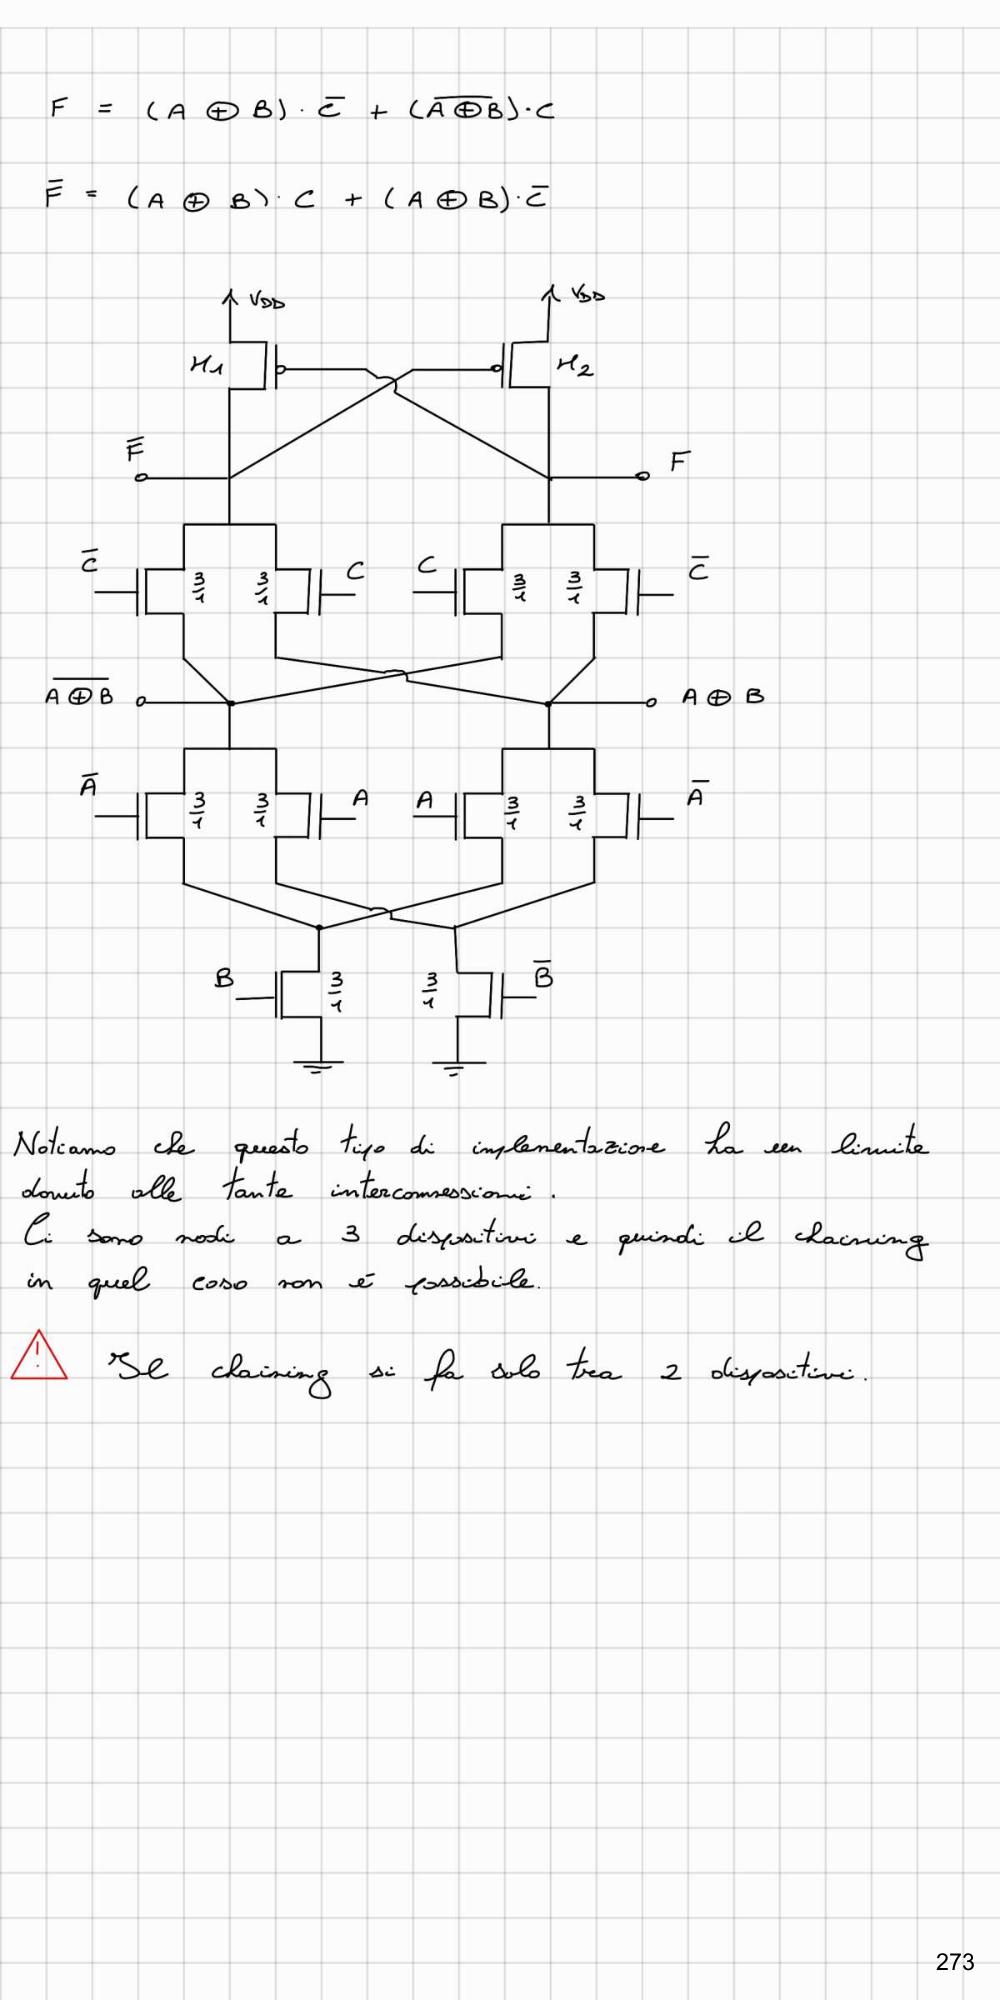 F = (A ⊕ B) · C̅ + (A̅ ⊕̅ B̅) · C
F̅ = (A ⊕ B) · C + (A ⊕ B) · C̅
VDD VDD
M1 M2
F̅ F
C̅ 3/1 3/1 C C 3/1 3/1 C̅
A̅ ⊕̅ B̅ A ⊕ B
A̅ 3/1 3/1 A A 3/1 3/1 A̅
B 3/1 3/1 B̅
Notiamo che questo tipo di implementazione ha un limite
dovuto alle tante interconnessioni.
Ci sono nodi a 3 dispositivi e quindi il chaining
in quel caso non è possibile.
! Il chaining si fa solo tra 2 dispositivi.
273